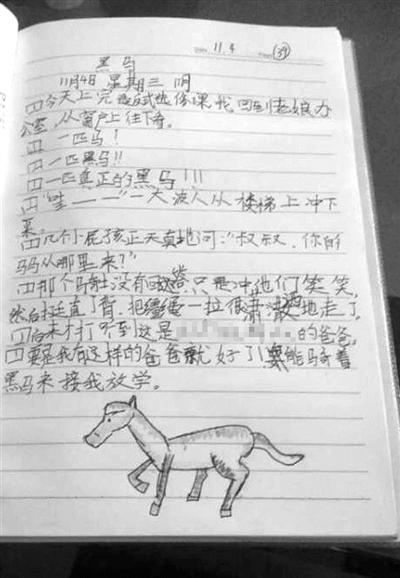 11.4 39
黑马
11月4日 星期三 阴
今天上完 试 修课,我回到老娘办
公室,从窗户上往下看。
一匹马!
一匹黑马!!
一匹真正的黑马!!!
“哇——”一大波人从楼梯上冲下
来。
几个小屁孩正天真地问:“叔叔,你的
马从哪里来?”
那个 没有回答,只是冲他们笑笑,
然后挺直了背,把缰绳一拉很潇洒地走了,
后来才打听到这是 的爸爸,
要是我有这样的爸爸就好了! 能骑着
黑马来接我放学。